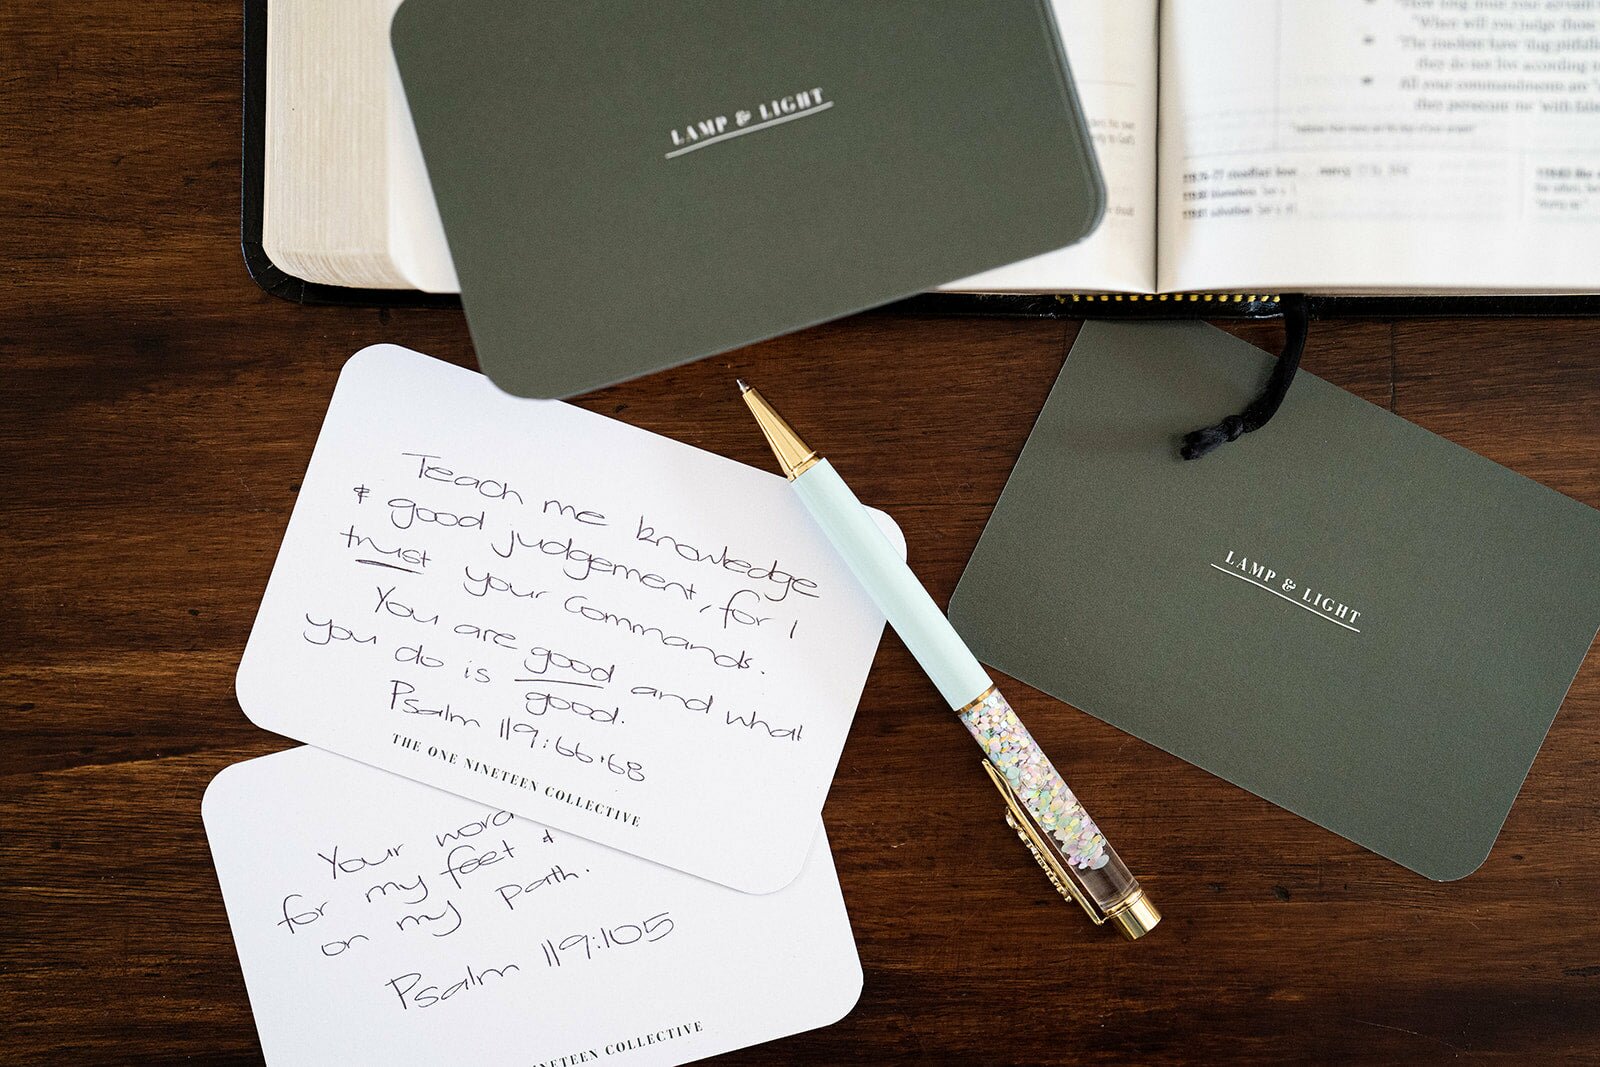 LAMP & LIGHT
"How long must your servant
"When will you judge those
"The insolent have dug pitfalls
they do not live according to
All your commandments are
they persecute me with false
LAMP & LIGHT
Teach me knowledge
& good judgement, for I
trust your commands.
You are good and what
you do is good.
Psalm 119:66,68
THE ONE NINETEEN COLLECTIVE
Your word
for my feet &
on my path.
Psalm 119:105
NINETEEN COLLECTIVE